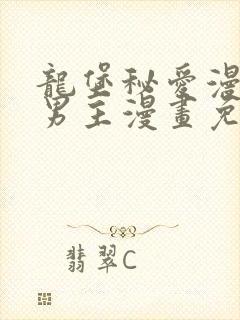 龍堡秘愛漫
男主漫畫免
翡翠C